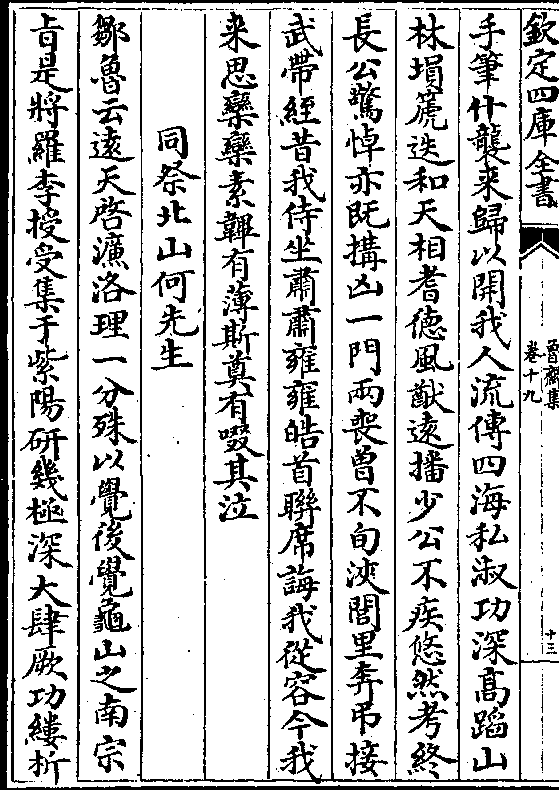 欽定四庫全書
魯齋集
卷十九
十三
手筆什襲來歸以開我人流傳四海私淑功深髙蹈山
林塤篪迭和天相耆徳風猷逺播少公不疾悠然考終
長公驚悼亦既搆凶一門兩喪曾不旬浹閭里奔弔接
武帶絰昔我侍坐肅肅雍雍皓首聯席誨我從容今我
来思欒欒素韠有薄斯奠有啜其泣
同祭北山何先生
鄒魯云逺天啓濂洛理一分殊以覺後覺龜山之南宗
㫖是將羅李授受集于紫陽研幾極深大肆厥功縷析